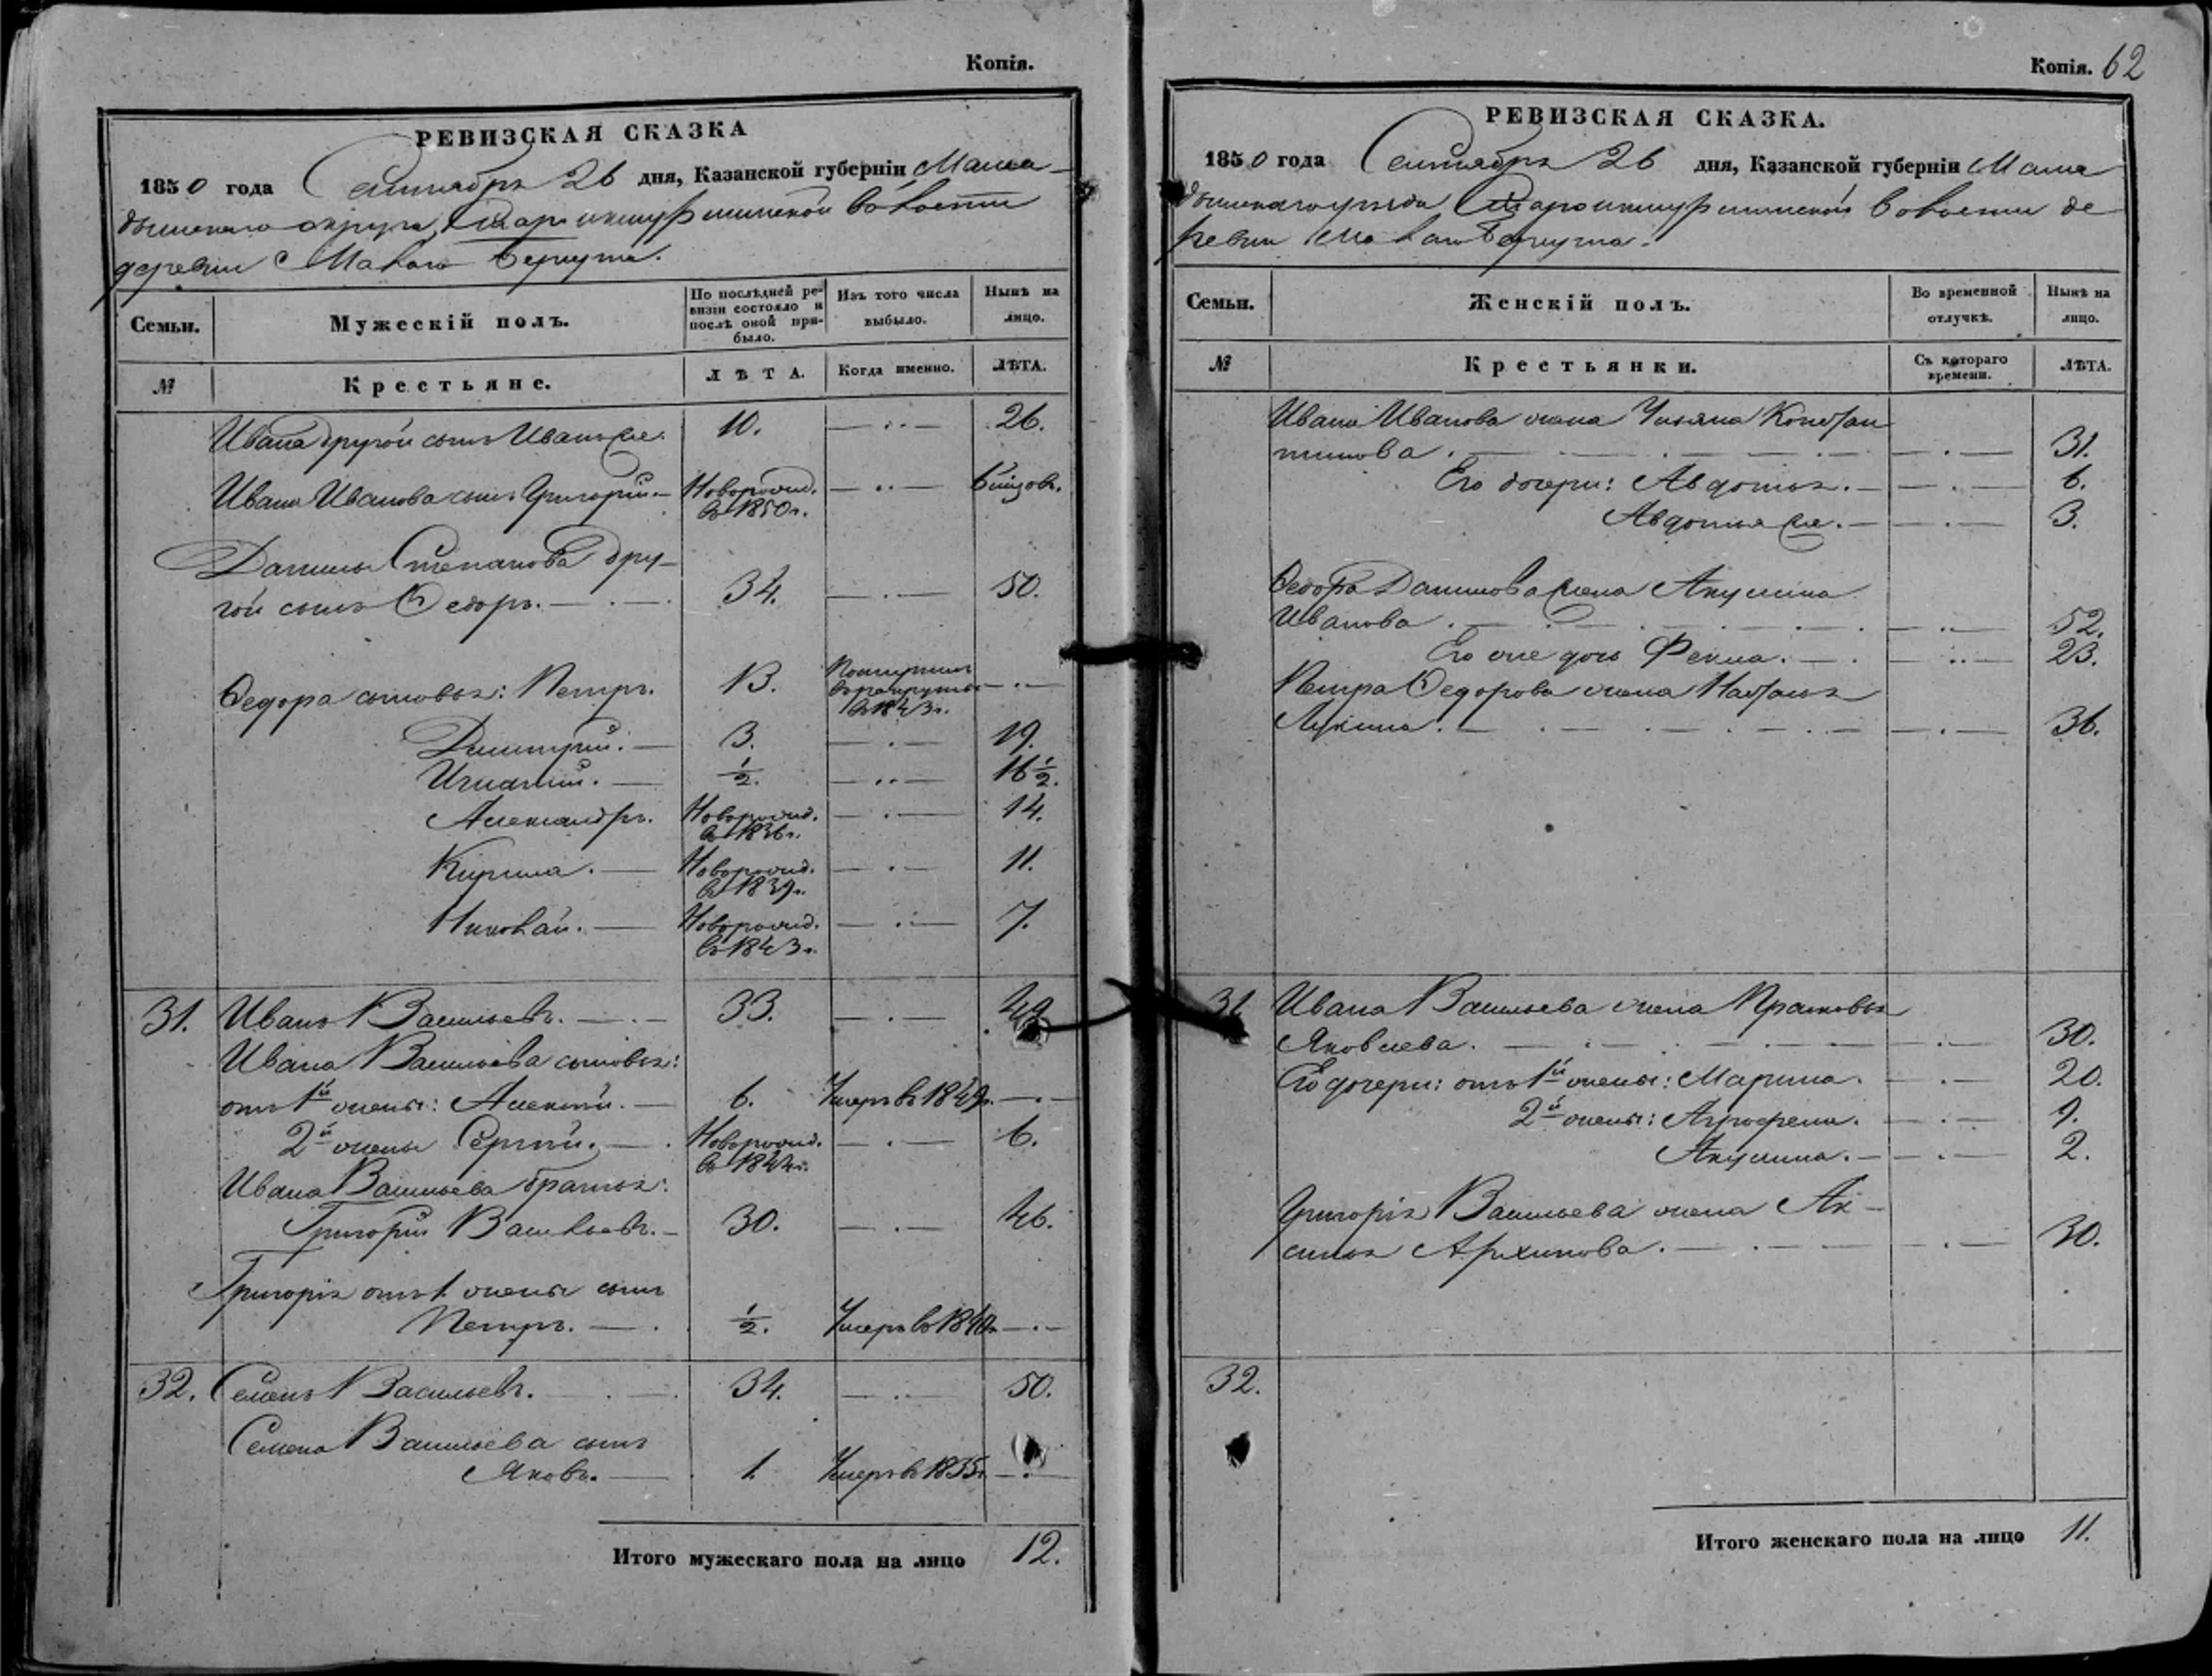 Копія.
РЕВИЗСКАЯ СКАЗКА
1850 года Сентября 26 дня, Казанской губерніи Мама-
дышскаго округа, волости
деревни Малаго
Семьи.
Мужескій полъ.
По послѣдней ре-
визіи состояло и
послѣ оной при-
было.
Изъ того числа
выбыло.
Нынѣ на
лицо.
№
Крестьяне.
ЛѢТА.
Когда именно.
ЛѢТА.
Ивана другой сынъ Иванъ же. 10. 26.
Ивана Иванова сынъ Григорій. Новорожд. 6
въ 1850 г.
Данилы Степанова дру-
гой сынъ Ѳедоръ. 34. 50.
Ѳедора сыновья: Петръ. 13.
въ 1843 г.
Дмитрій. 3. 19.
Игнатій. 1/2. 16 1/2.
Александръ. Новорожд. 14.
въ 1836 г.
Кирила. Новорожд. 11.
въ 1839 г.
Николай. Новорожд. 7.
въ 1843 г.
31. Иванъ Васильевъ. 33. 49
Ивана Васильева сыновья:
отъ 1й жены: Алексѣй. 6. Умеръ въ 1849 г.
2й жены Сергѣй. Новорожд. 6.
въ 1844 г.
Ивана Васильева братья:
Григорій Васильевъ. 30. 46.
Григорія отъ 1. жены сынъ
Петръ. 1/2. Умеръ въ 1840 г.
32. Семенъ Васильевъ. 34. 50.
Семена Васильева сынъ
Яковъ. 1. Умеръ въ 1835 г.
Итого мужескаго пола на лицо 12.
Копія. 62
РЕВИЗСКАЯ СКАЗКА.
1850 года Сентября 26 дня, Казанской губерніи Мама
дышскаго уѣзда волости де
ревни Малаго
Семьи.
Женскій полъ.
Во временной
отлучкѣ.
Нынѣ на
лицо.
№
Крестьянки.
Съ котораго
времени.
ЛѢТА.
Ивана Иванова жена Ульяна Констан
тинова. 31.
Его дочери: Авдотья. 6.
Авдотья же. 3.
Ѳедора Данилова жена Акулина
Иванова. 52.
Его же дочь Фекла. 23.
Петра Ѳедорова жена Наталья
Лукина. 36.
31 Ивана Васильева жена Прасковья
Яковлева. 30.
Его дочери: отъ 1й жены: Марина. 20.
2й жены: Аграфена. 9.
Акулина. 2.
Григорія Васильева жена Ак-
синья Архипова. 30.
32.
Итого женскаго пола на лицо 11.